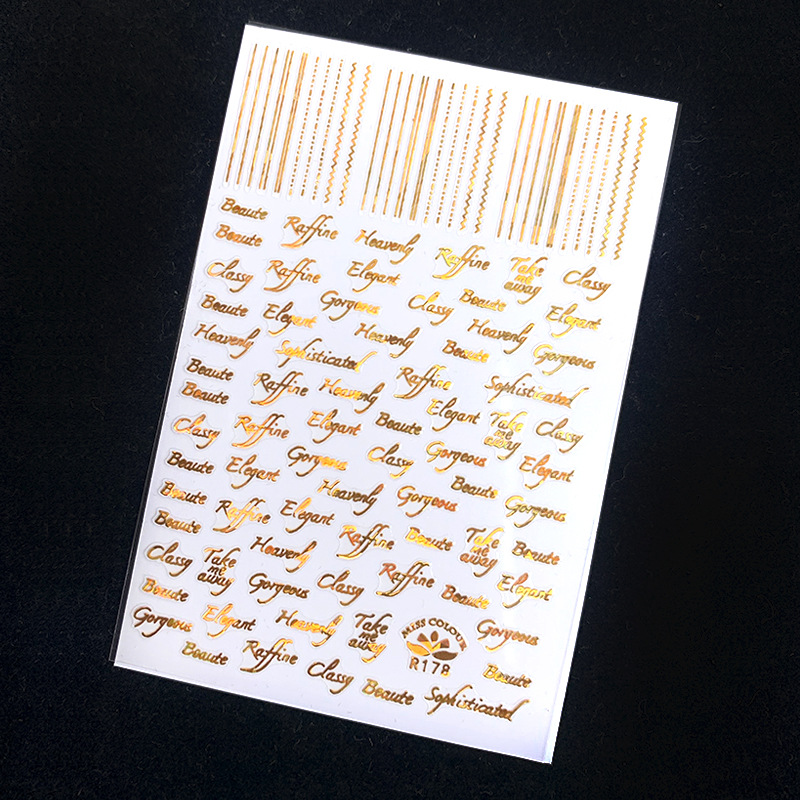 Beaute
Beaute Raffine Heavenly Raffine Take me away Classy
Classy Raffine Elegant Beaute
Beaute Elegant Gorgeous Classy Heavenly Elegant
Heavenly Sophisticated Heavenly Beaute Gorgeous
Beaute Raffine Heavenly Raffine Sophisticated
Beaute Elegant Take me away Classy
Classy Raffine Elegant Beaute
Beaute Elegant Gorgeous Classy Gorgeous Elegant
Beaute Heavenly Gorgeous Beaute Gorgeous
Beaute Raffine Elegant Raffine Beaute Take me away Beaute
Classy Take me away Heavenly Raffine Elegant
Beaute Gorgeous Classy Beaute
Gorgeous Elegant Heavenly Take me away MISS COLOUR Gorgeous
R178
Beaute Raffine Classy Beaute Sophisticated Beaute